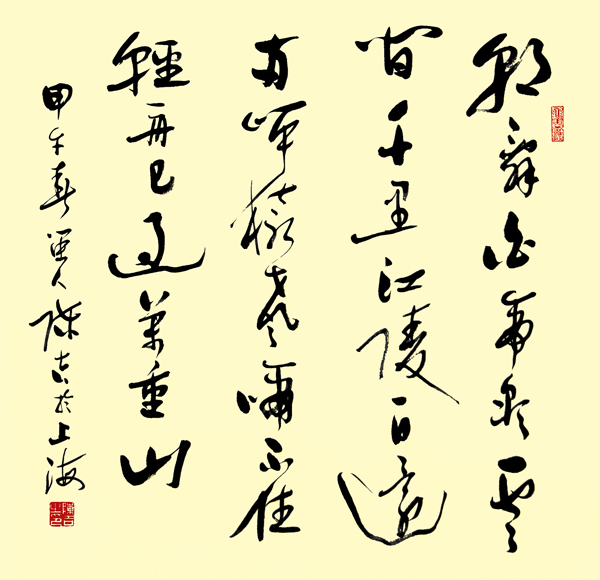 朝辭白帝彩雲
間千里江陵一日還
兩岸猿聲啼不住
輕舟已過萬重山
甲午春 人陳吉於上海